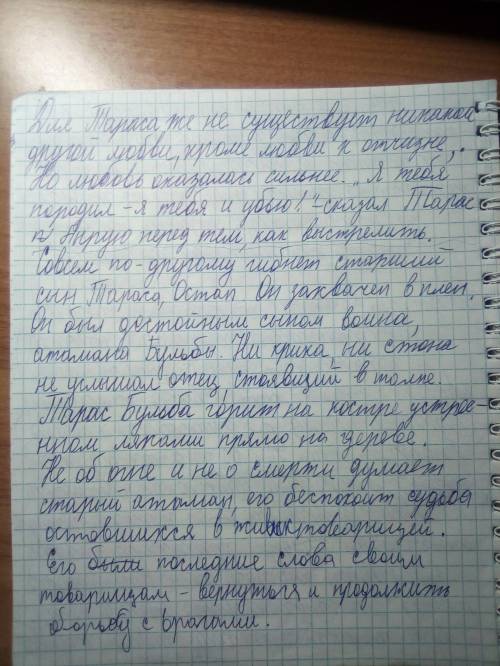 Для Тараса же не существует никакой
другой любви, кроме любви к отчизне,.
Но любовь оказалась сильнее. "Я тебя
породил - я тебя и убью!" - сказал Тарас
Андрую перед тем, как выстрелить.
Совсем по-другому гибнет старший
сын Тараса, Остап. Он захвачен в плен.
Он был достойным сыном воина,
атамана Бульбы. Ни крика, ни стона
не услышал отец, стоявщий в толпе.
Тарас Бульба горит на костре устрое-
нном ляхами прямо на дереве.
Не об огне и не о смерти думает
старый атаман, его беспокоит судьба
оставшихся в живых товарищей.
Его были последние слова своим
товарищам - вернуться и продолжить
борьбу с врагами.